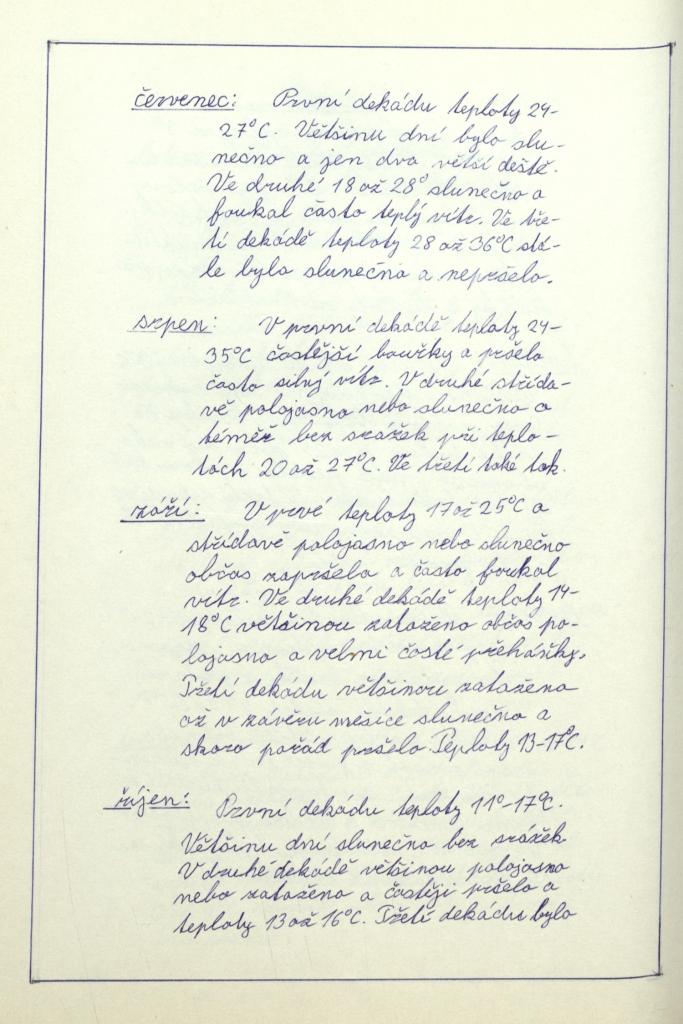 červenec: První dekádu teploty 24-
27°C. Většinu dní bylo slu-
nečno a jen dva větší deště.
Ve druhé 18 až 28° slunečno a
foukal často teplý vítr. Ve tře-
tí dekádě teploty 28 až 36°C stá-
le bylo slunečno a nepršelo.
srpen: V první dekádě teploty 24-
35°C častější bouřky a pršelo
často silný vítr. V druhé střída-
vě polojasno nebo slunečno a
téměř bez srážek při teplo-
tách 20 až 27°C. Ve třetí také tak.
září: V prvé teploty 17 až 25°C a
střídavě polojasno nebo slunečno
občas zapršelo a často foukal
vítr. Ve druhé dekádě teploty 14-
18°C většinou zataženo občas po-
lojasno a velmi časté přeháňky.
Třetí dekádu většinou zataženo
až v závěru měsíce slunečno a
skoro pořád pršelo. Teploty 13-17°C.
říjen: První dekádu teploty 11°-17°C.
Většinu dní slunečno bez srážek
V druhé dekádě většinou polojasno
nebo zataženo a častěji pršelo a
teploty 13 až 16°C. Třetí dekádu bylo